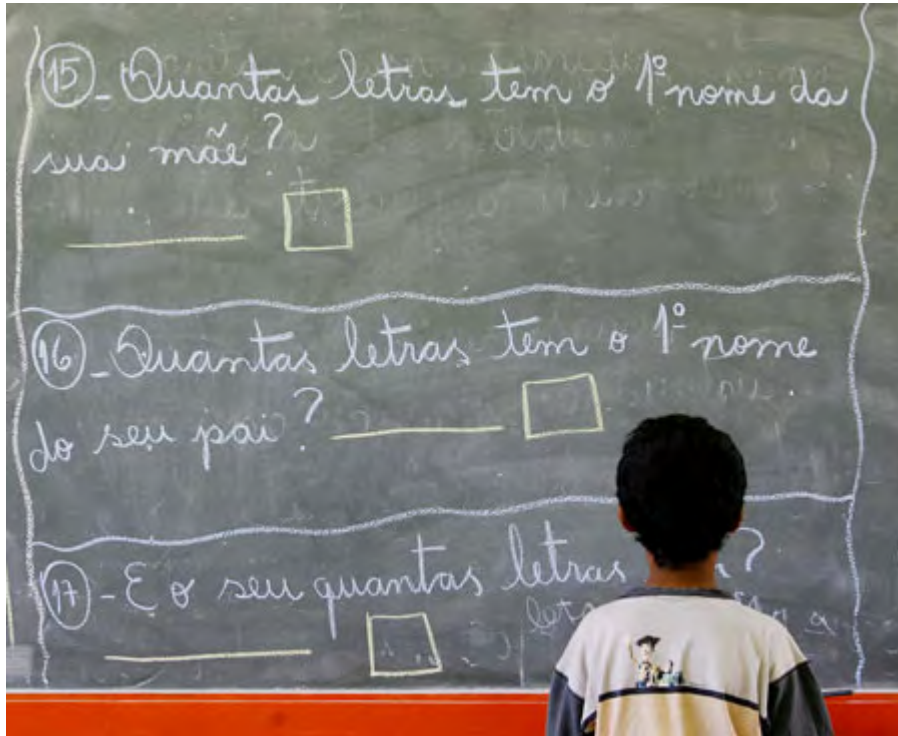 15 - Quantas letras tem o 1º nome da
sua mãe?
16 - Quantas letras tem o 1º nome
do seu pai?
17 - E o seu quantas letras ?